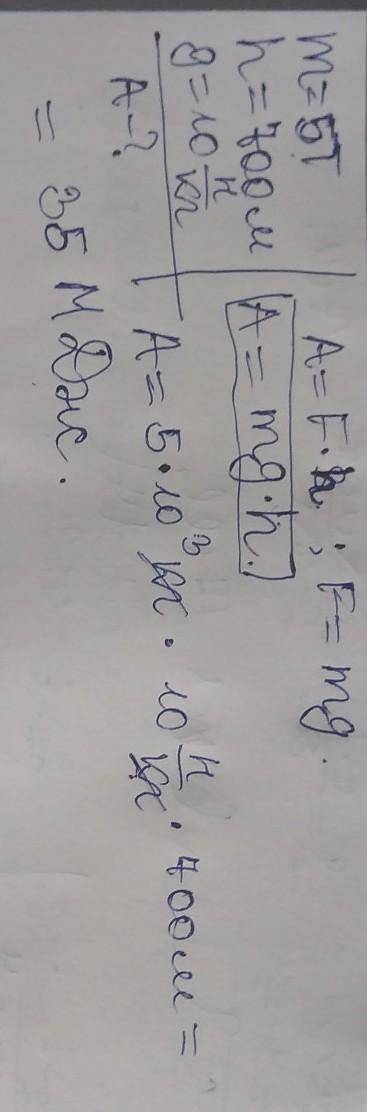 m = 5т
h = 700м
g = 10 н/кг
A - ?
A = F · h ; F = mg.
A = mg · h.
A = 5 · 10³ кг · 10 н/кг · 700м =
= 35 МДж.